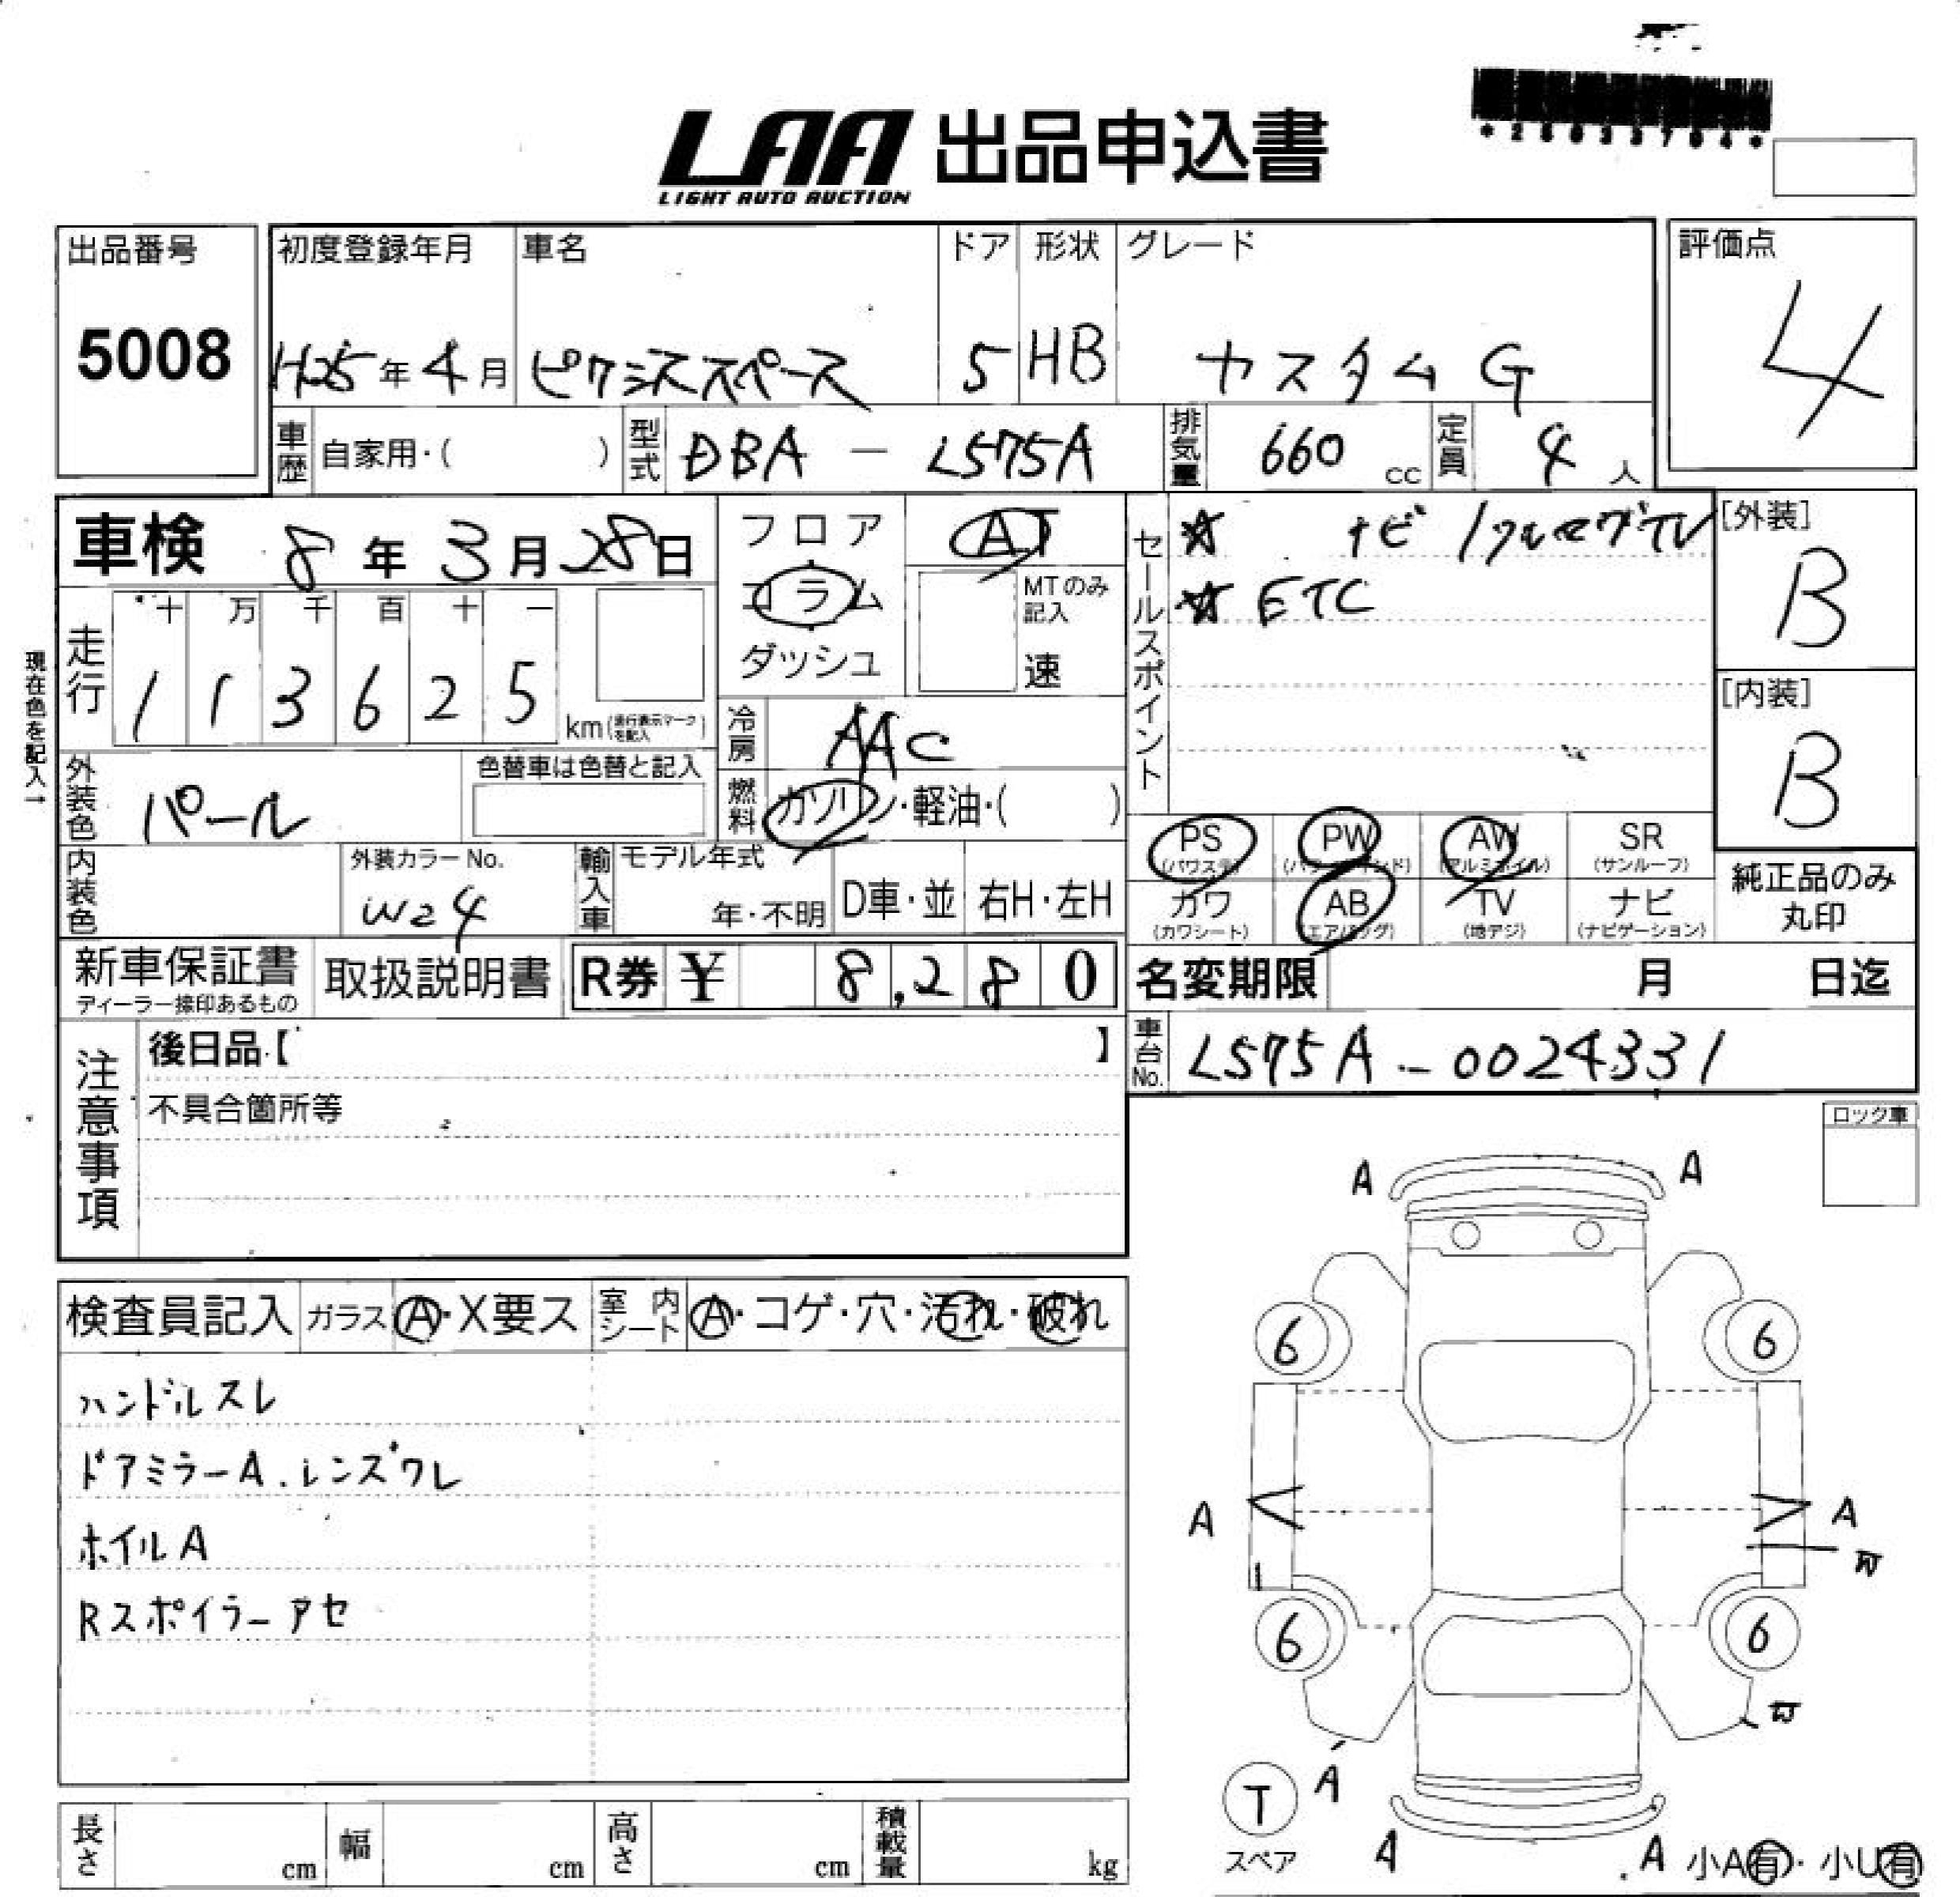 *28023704*
LAA 出品申込書
LIGHT AUTO AUCTION
出品番号 初度登録年月 車名 ドア 形状 グレード 評価点
5008 H25年4月 ピクシススペース 5 HB カスタム G 4
車歴 自家用・( ) 型式 DBA - L575A 排気量 660 cc 定員 4 人
車検 8年3月28日 フロア AT セールスポイント ☆ ナビ/フルセグTV [外装]
コラム MTのみ記入 ☆ ETC B
ダッシュ 速
現在色を記入→
走行 十 万 千 百 十 一
1 1 3 6 2 5 km(走行表示マークを記入)
[内装]
B
冷房 AAC
外装色 パール 色替車は色替と記入 燃料 ガソリン・軽油・( )
PS (パワステ) PW (パワーウィンド) AW (アルミホイル) SR (サンルーフ)
内装色 外装カラーNo. W24 輸入車 モデル年式 年・不明 D車・並 右H・左H
カワ (カワシート) AB (エアバッグ) TV (地デジ) ナビ (ナビゲーション)
純正品のみ
丸印
新車保証書 取扱説明書 R券 ¥ 8,280 名変期限 月 日迄
ディーラー捺印あるもの
注意事項 後日品【 】 車台No. L575A-0024331
不具合箇所等
ロック車
A A
検査員記入 ガラス A・X要ス 室内シート A・コゲ・穴・汚れ・破れ
6 6
ハンドルスレ
ドアミラーA.レンズワレ
A A
ホイルA
W
Rスポイラーアセ
6 6
W
T A
スペア A A 小A有・小U有
長さ cm 幅 cm 高さ cm 積載量 kg